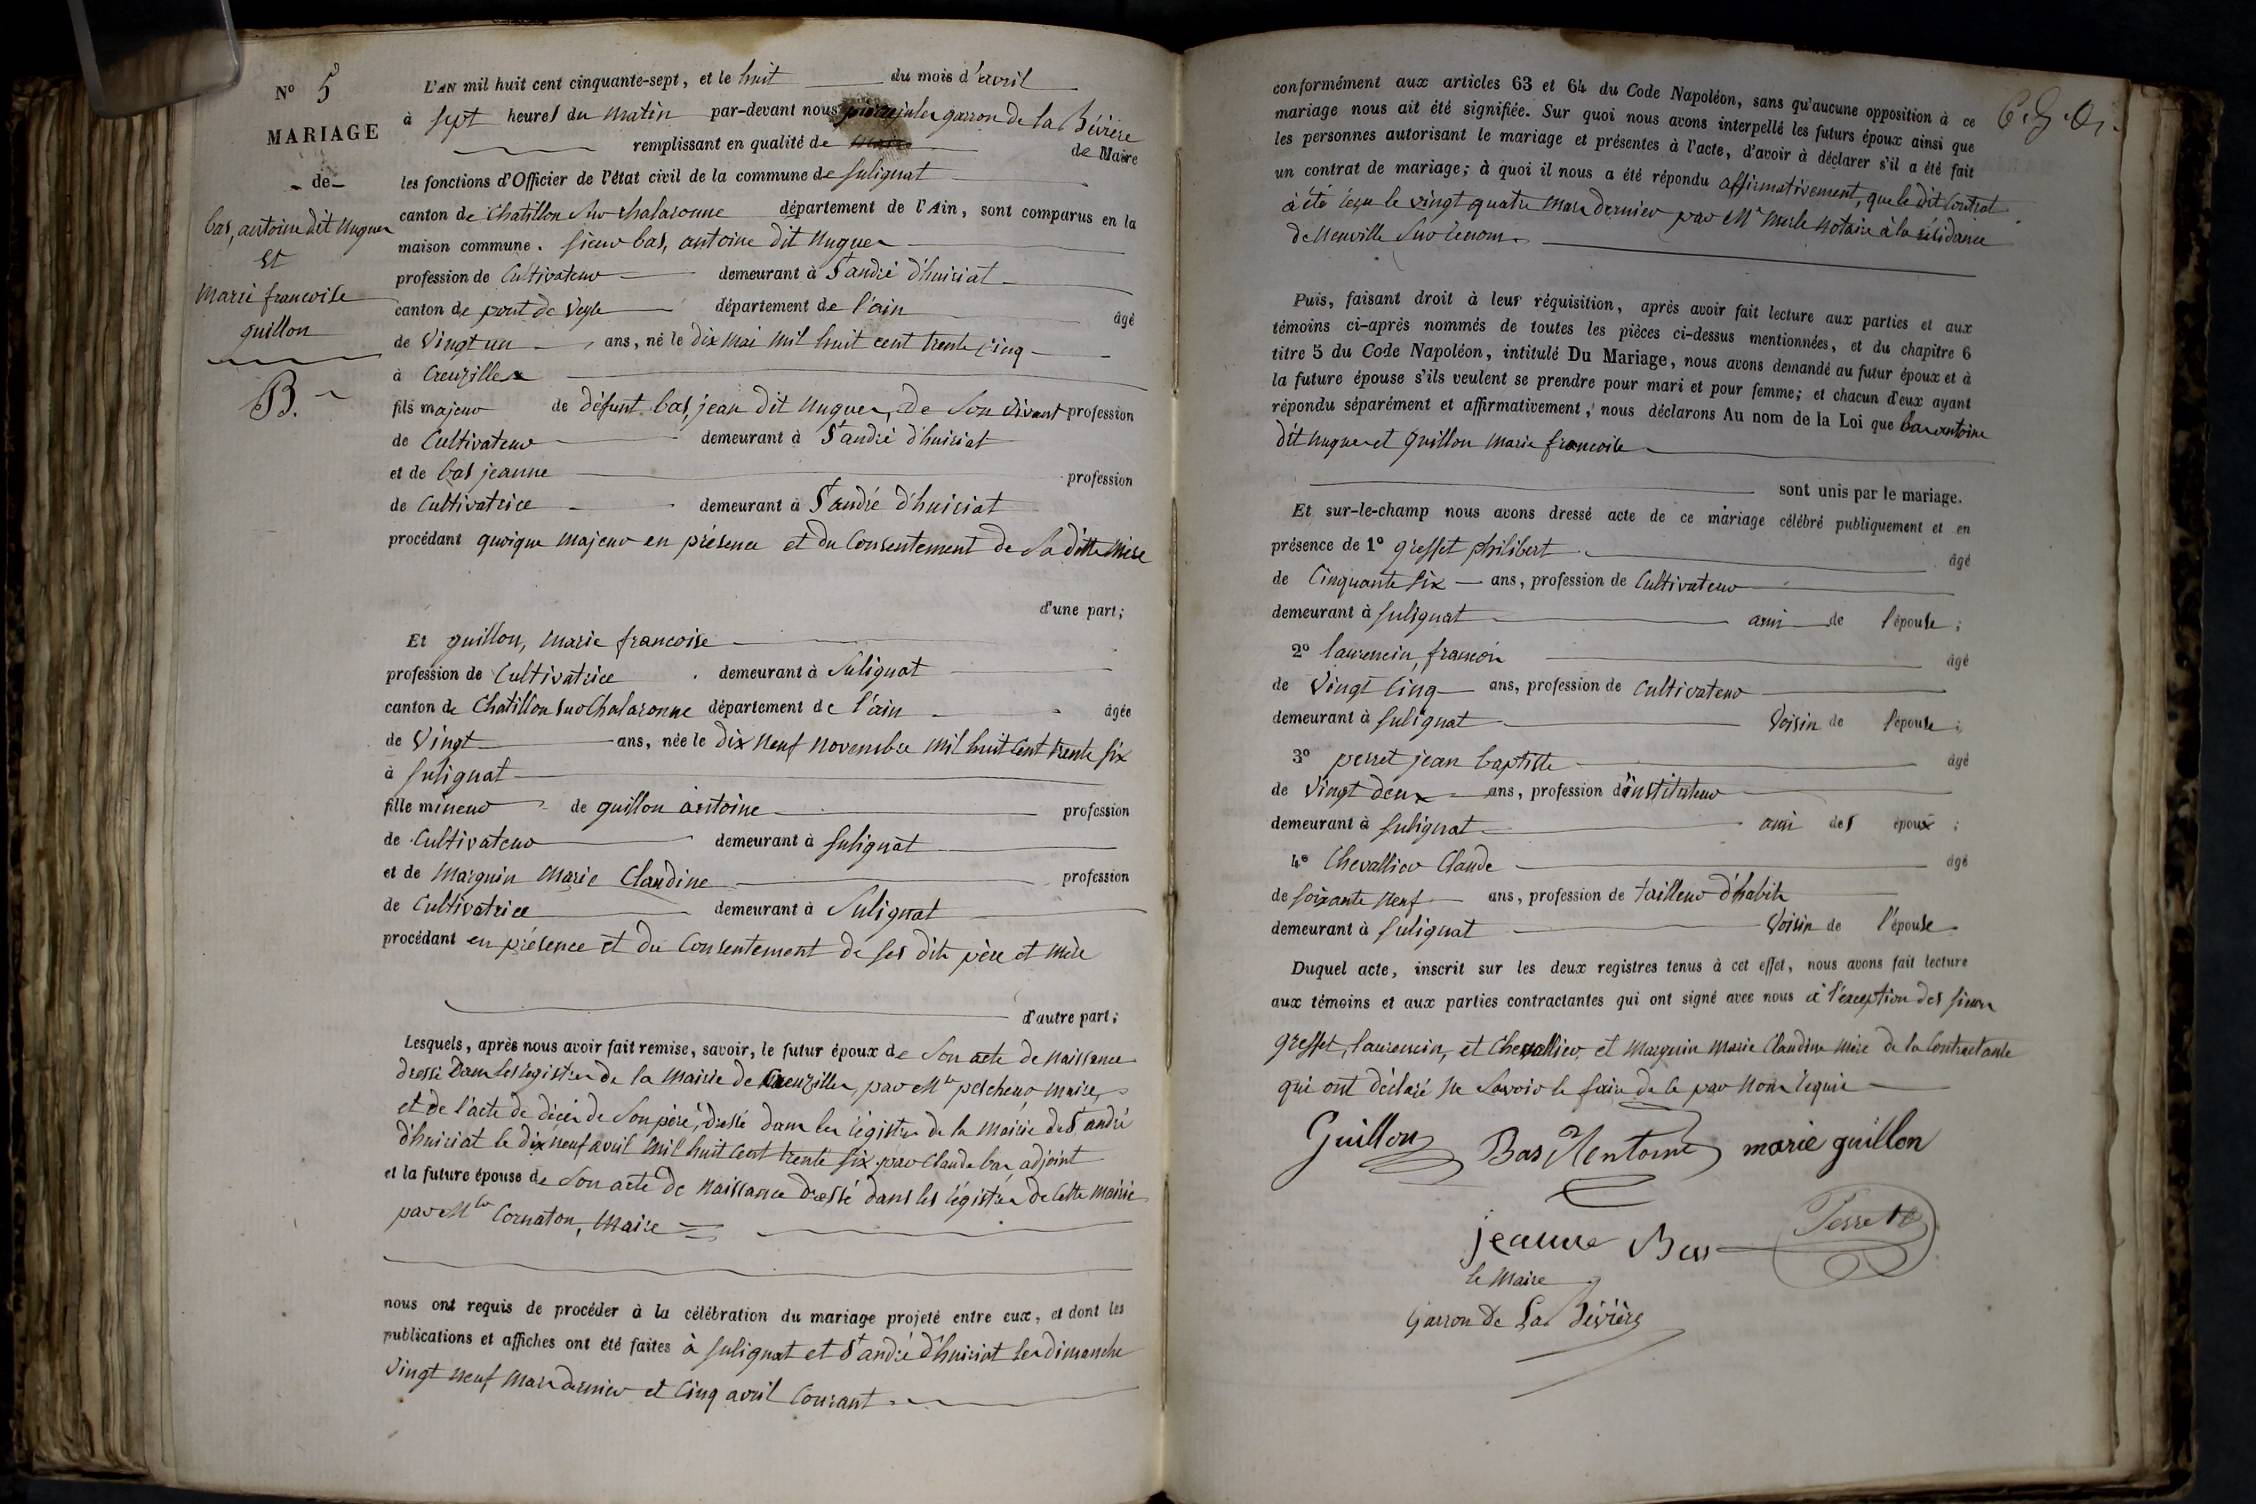 N° 5
MARIAGE
de
bas, antoine dit Nuguer
Et
Marie francoise
guillon
B.
L'AN mil huit cent cinquante-sept, et le huit du mois d'avril
à sept heures du matin par-devant nous jules garron de la Bévière
remplissant en qualité de Maire de Maire
les fonctions d'Officier de l'état civil de la commune de Sulignat
canton de Chatillon Sur chalaronne département de l'Ain, sont comparus en la
maison commune. Sieur bas, antoine dit Nuguer
profession de Cultivateur demeurant à St andré d'huiriat
canton de pont de Veyle département de l'ain âgé
de Vingt un ans, né le dix mai mil huit cent trente cinq
à Creuzilles
fils majeur de défunt bas jean dit Nuguer, de Son Vivant profession
de Cultivateur demeurant à St andré d'huiriat
et de bas jeanne profession
de Cultivatrice demeurant à St andré d'huiriat
procédant quoique majeur en présence et du Consentement de Sa ditte Mère
d'une part;
Et guillon, Marie francoise
profession de Cultivatrice demeurant à Sulignat
canton de Chatillon Sur Chalaronne département de l'ain âgée
de Vingt ans, née le dix Neuf Novembre mil huit Cent trente Six
à Sulignat
fille mineur de guillon antoine profession
de Cultivateur demeurant à Sulignat
et de Marguin Marie Claudine profession
de Cultivatrice demeurant à Sulignat
procédant en présence et du Consentement de Ses dits père et mère
d'autre part;
Lesquels, après nous avoir fait remise, savoir, le futur époux de Son acte de Naissance
dressé Dans les registres de la Mairie de Creuzilles, par Mr pescheur maire,
et de l'acte de décès de Son père, dressé dans les régistres de la Mairie de St andré
d'huiriat le dix neuf avril Mil huit Cent trente Six par Claude bas adjoint
et la future épouse de Son acte de Naissance dressé dans les régistres de Cette Mairie
par Mr Cornaton, Maire
nous ont requis de procéder à la célébration du mariage projeté entre eux, et dont les
publications et affiches ont été faites à Sulignat et St andré d'huiriat les dimanche
Vingt neuf Mars dernier et Cinq avril Courant
conformément aux articles 63 et 64 du Code Napoléon, sans qu'aucune opposition à ce
mariage nous ait été signifiée. Sur quoi nous avons interpellé les futurs époux ainsi que
les personnes autorisant le mariage et présentes à l'acte, d'avoir à déclarer s'il a été fait
un contrat de mariage; à quoi il nous a été répondu affirmativement, que le dit Contrat
à été reçu le vingt quatre mars dernier par Me Merle Notaire à la résidance
de Neuville Sur renom.
Puis, faisant droit à leur réquisition, après avoir fait lecture aux parties et aux
témoins ci-après nommés de toutes les pièces ci-dessus mentionnées, et du chapitre 6
titre 5 du Code Napoléon, intitulé Du Mariage, nous avons demandé au futur époux et à
la future épouse s'ils veulent se prendre pour mari et pour femme; et chacun d'eux ayant
répondu séparément et affirmativement, nous déclarons Au nom de la Loi que bas antoine
dit Nuguer et Guillon Marie francoise
sont unis par le mariage.
Et sur-le-champ nous avons dressé acte de ce mariage célébré publiquement et en
présence de 1° gresset philibert âgé
de Cinquante Six ans, profession de Cultivateur
demeurant à Sulignat ami de l'épouse;
2° laurencin, francois âgé
de Vingt Cinq ans, profession de Cultivateur
demeurant à Sulignat Voisin de l'épouse;
3° perret jean baptiste âgé
de Vingt deux ans, profession d'instituteur
demeurant à Sulignat ami des époux;
4° Chevallier Claude âgé
de Soixante Neuf ans, profession de tailleur d'habits
demeurant à Sulignat Voisin de l'épouse
Duquel acte, inscrit sur les deux registres tenus à cet effet, nous avons fait lecture
aux témoins et aux parties contractantes qui ont signé avec nous à l'exception des Sieurs
gresset, laurencin, et Chevallier, et Marguin Marie Claudine Mère de la Contractante
qui ont déclaré Ne Savoir le faire de ce par Nous requis
Guillon Bas Nentoine marie guillon
jeanne Bas Perret
le Maire
Garron de La Bévière